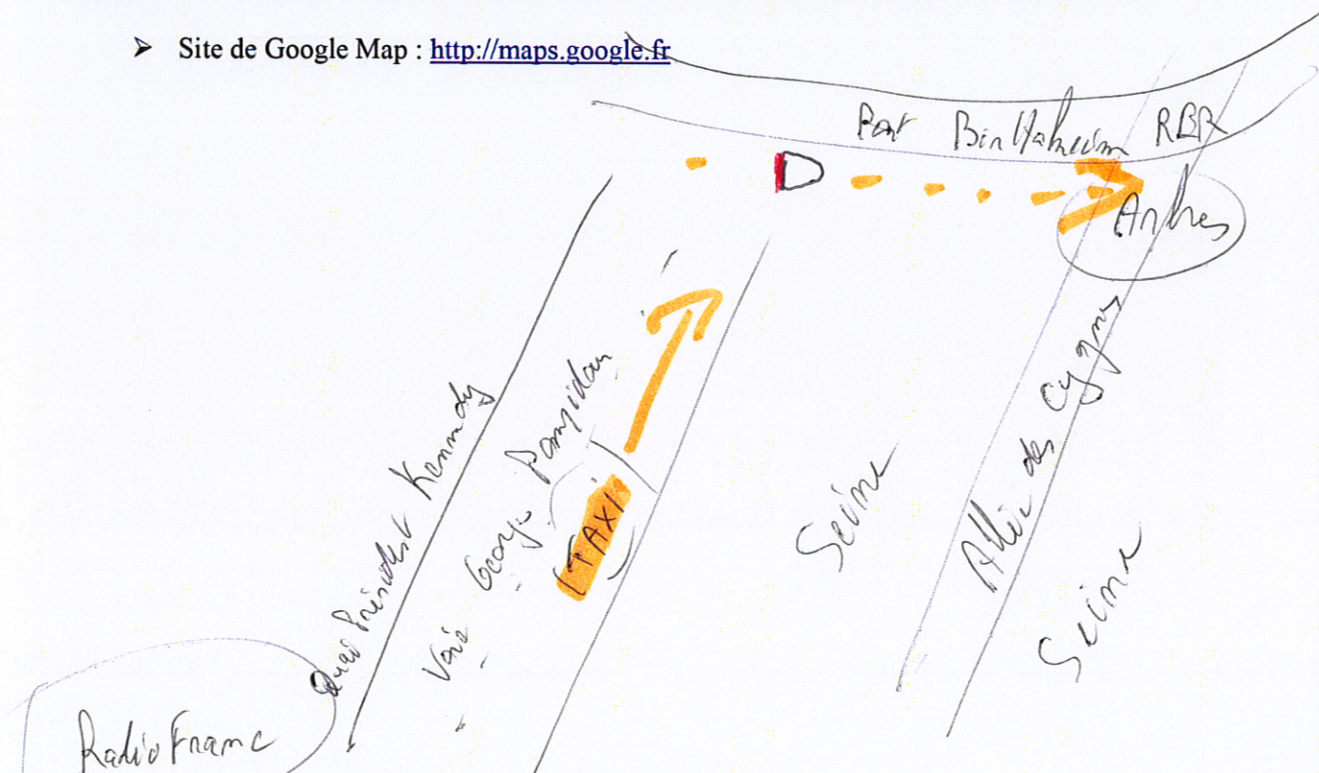 ➤ Site de Google Map : http://maps.google.fr
Pont Bir Hakeim RER
Arbres
Quai Président Kennedy
Voie Georges Pompidou
TAXI
Seine
Allée des Cygnes
Seine
Radio France